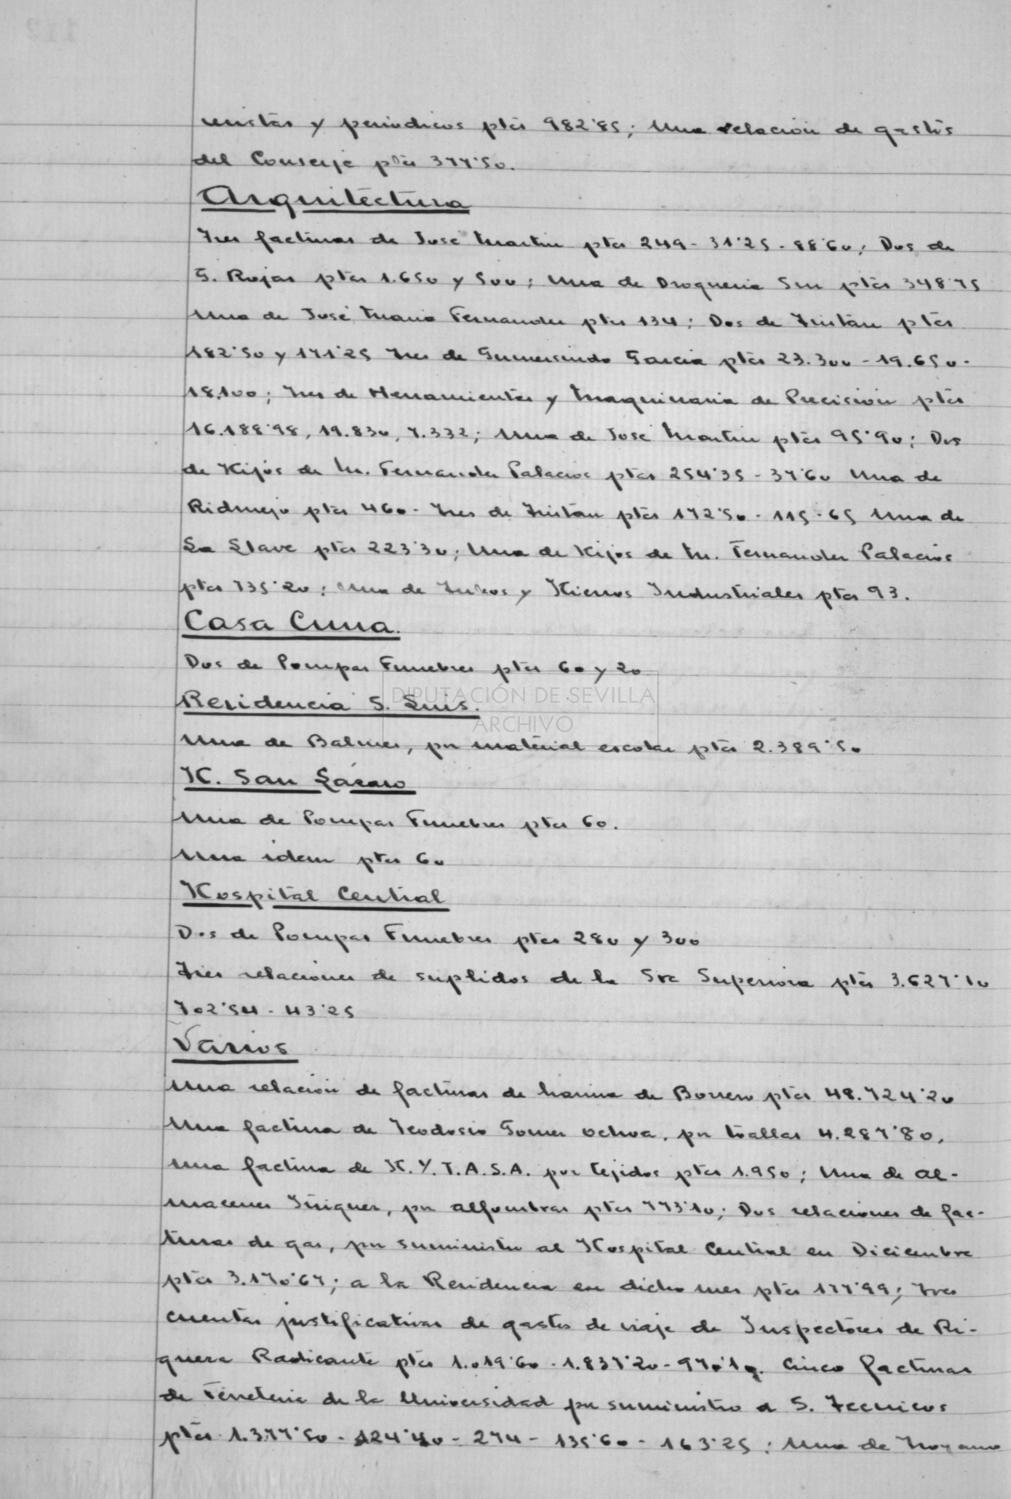 revistas y periodicos ptas 982'85; Una relacion de gastos
del Conserje ptas 377'50.
Arquitectura
Tres facturas de José Martin ptas 249 - 31'25 - 88'60; Dos de
G. Rojas ptas 1.650 y 500; Una de Drogueria Sur ptas 348'75
Una de José Maria Fernandez ptas 134; Dos de Tristán ptas
182'50 y 171'25 Tres de Gumersindo Garcia ptas 23.300 - 19.650 -
18.100; Tres de Herramientas y Maquinaria de Precisión ptas
16.188'98, 19.830, 7.332; Una de José Martin ptas 95'90; Dos
de Hijos de M. Fernandez Palacios ptas 254'35 - 37'60 Una de
Ridruejo ptas 460 - Tres de Tristán ptas 172'50 - 115 - 65 Una de
La Llave ptas 223'30; Una de Hijos de M. Fernandez Palacios
ptas 735'20; Una de Tubos y Hierros Industriales ptas 93.
Casa Cuna.
Dos de Pompas Funebres ptas 60 y 20
DIPUTACIÓN DE SEVILLA
ARCHIVO
Residencia S. Luis.
Una de Balmes, por material escolar ptas 2.389'50
H. San Lázaro
Una de Pompas Funebres ptas 60.
Una idem ptas 60
Hospital Central
Dos de Pompas Funebres ptas 280 y 300
Tres relaciones de suplidos de la Sra Superiora ptas 3.627'10
702'54 - 43'25
Varios
Una relación de facturas de harina de Borrero ptas 48.724'20
Una factura de Teodosio Gomez Ochoa, por toallas 4.287'80.
Una factura de H.Y.T.A.S.A. por tejidos ptas 1.950; Una de Al-
macenes Iñiguez, por alfombras ptas 773'10; Dos relaciones de fac-
turas de gas, por suministro al Hospital Central en Diciembre
ptas 3.170'67; a la Residencia en dicho mes ptas 177'99; Tres
cuentas justificativas de gastos de viaje de Inspectores de Ri-
queza Radicante ptas 1.019'60 - 1.837'20 - 970'10. Cinco facturas
de Ferreteria de la Universidad por suministro a S. Tecnicos
ptas 1.377'50 - 424'40 - 274 - 135'60 - 163'25; Una de Troyano